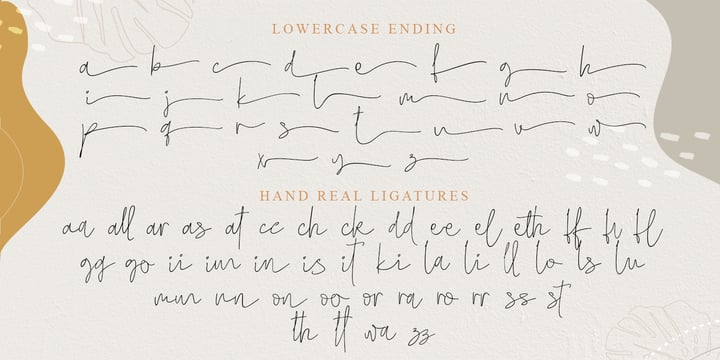 LOWERCASE ENDING
a b c d e f g h
i j k l m n o
p q r s t u v w
x y z
HAND REAL LIGATURES
aa all ar as at cc ch ck dd ee el eth ff fi fl
gg go ii im in is it ki la li ll lo ls lu
mm nn on oo or ra ro rr ss st
th tt wa zz